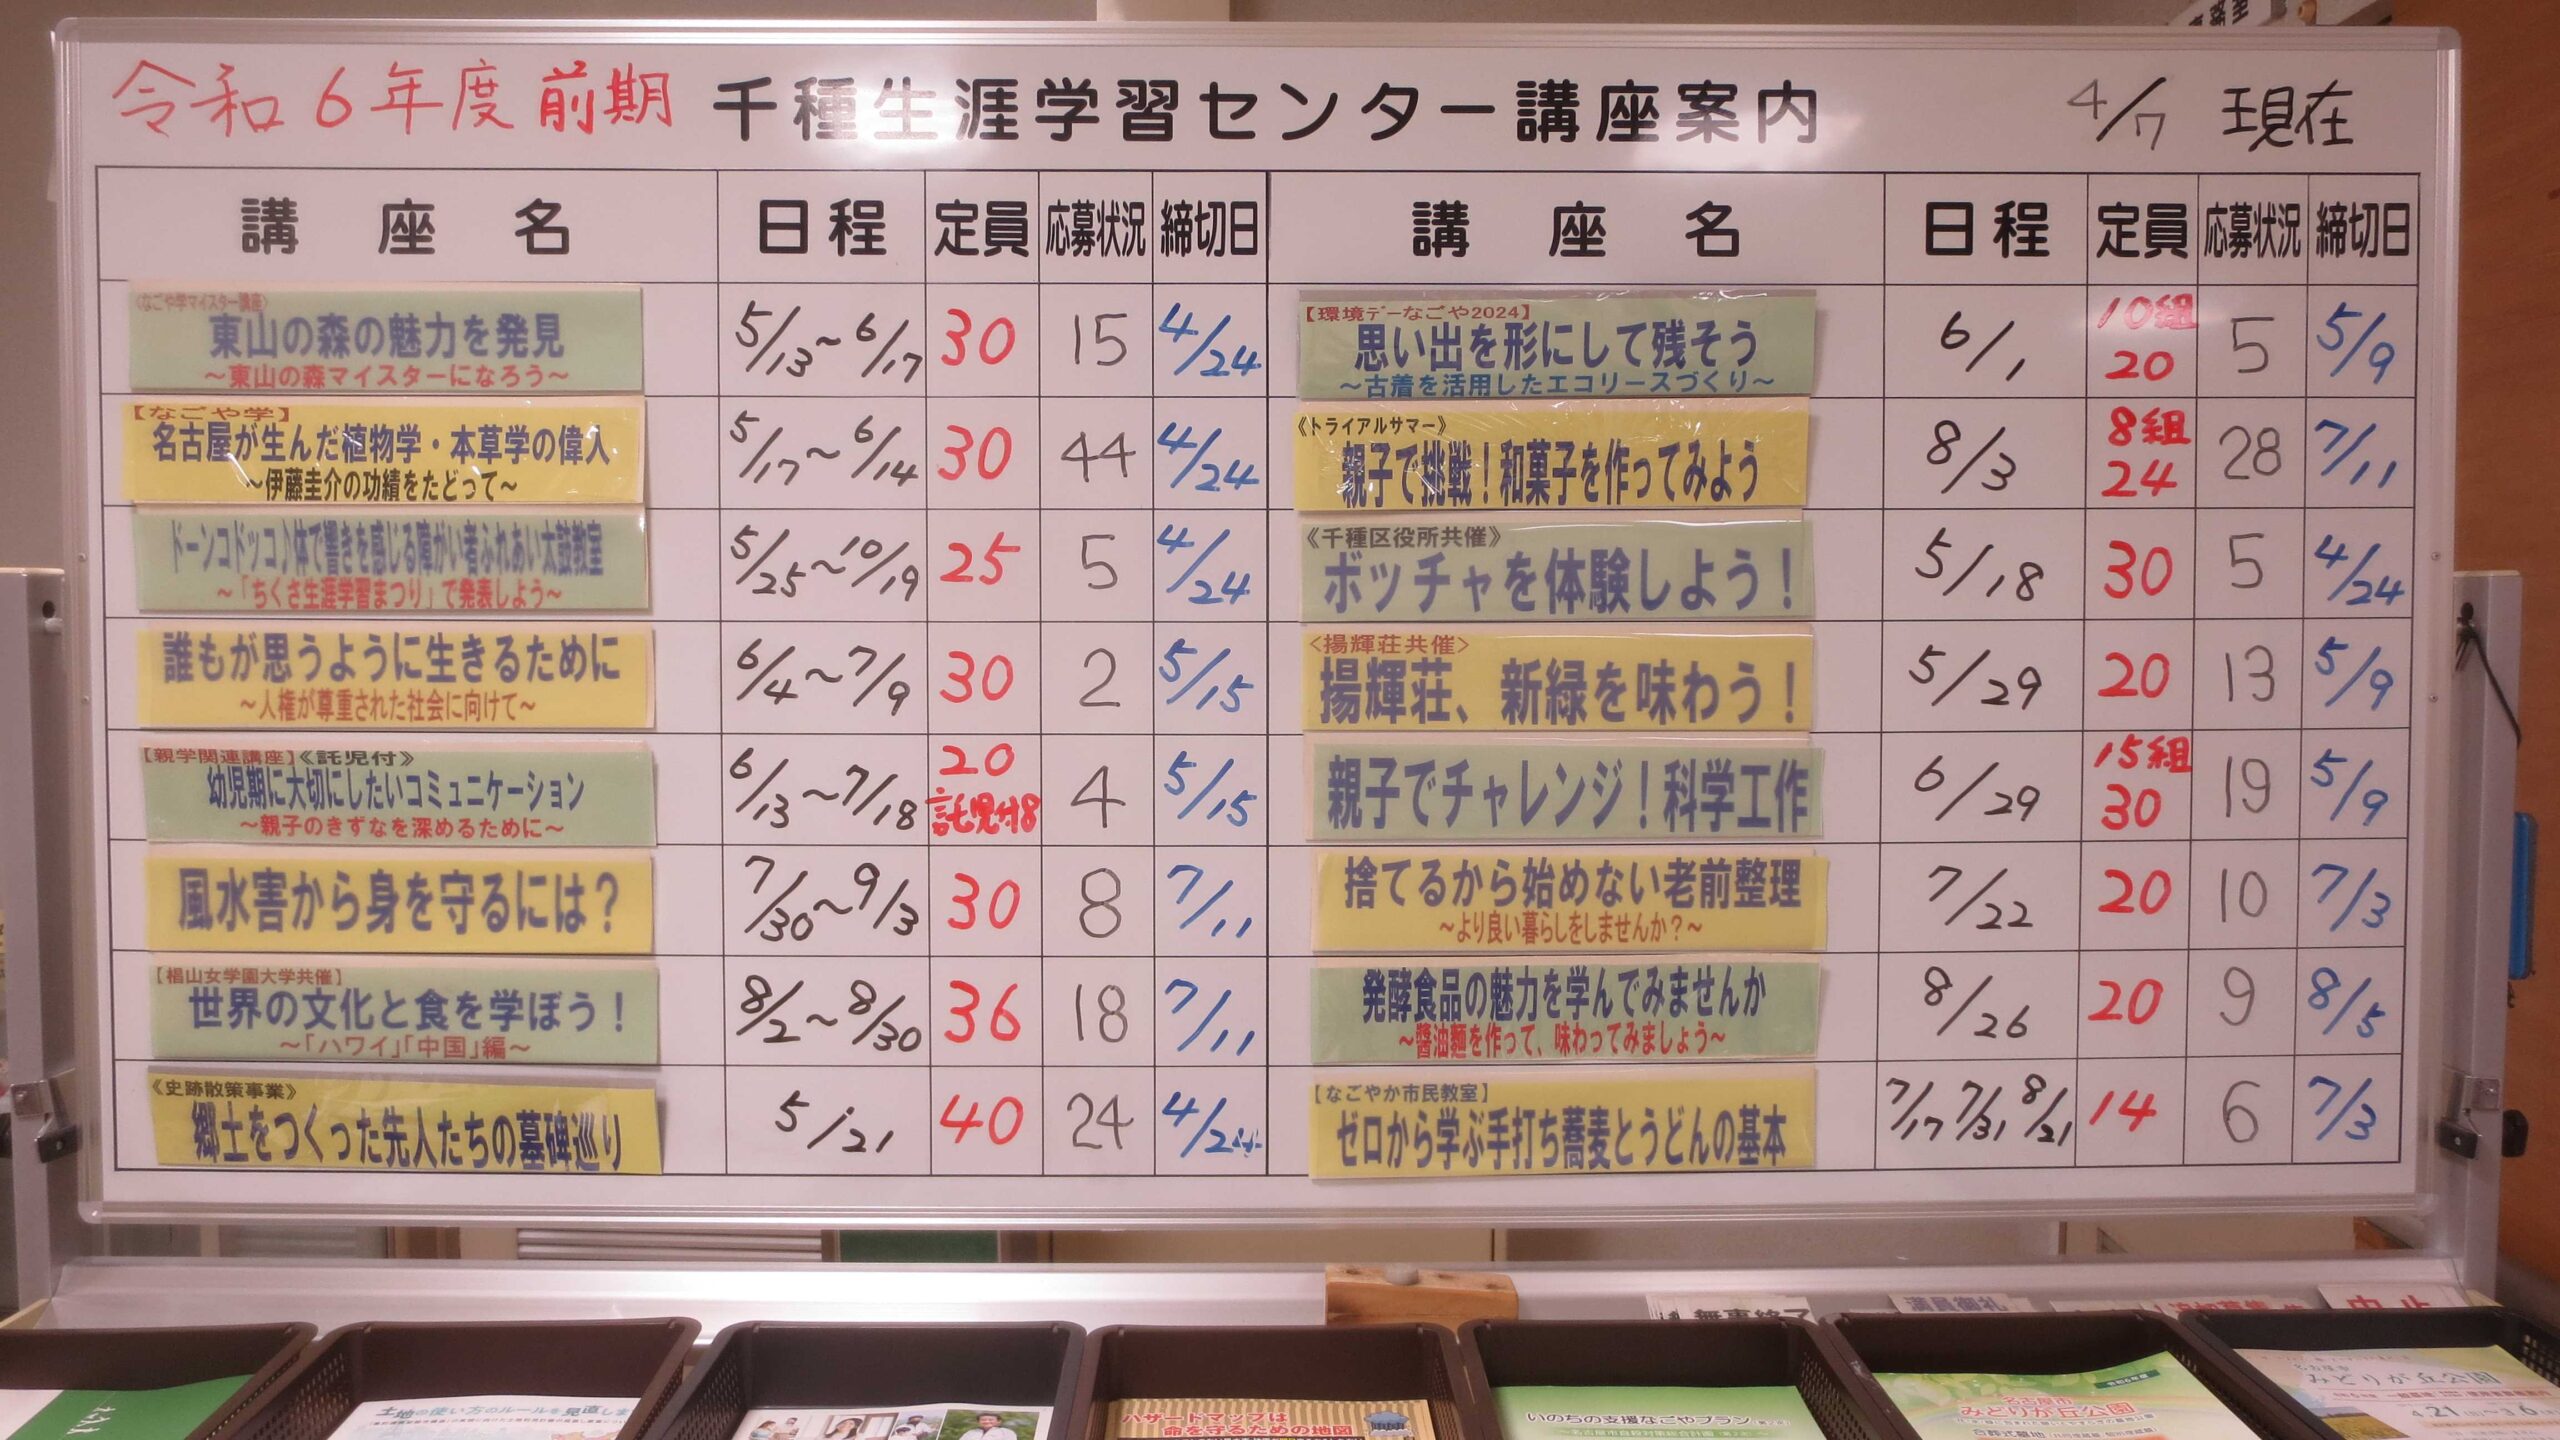 令和6年度前期 千種生涯学習センター講座案内 4/7 現在
講座名 日程 定員 応募状況 締切日
〈なごや学マイスター講座〉
東山の森の魅力を発見
～東山の森マイスターになろう～
5/13～6/17 30 15 4/24
【なごや学】
名古屋が生んだ植物学・本草学の偉人
～伊藤圭介の功績をたどって～
5/17～6/14 30 44 4/24
ドーンコドッコ♪体で響きを感じる障がい者ふれあい太鼓教室
～「ちくさ生涯学習まつり」で発表しよう～
5/25～10/19 25 5 4/24
誰もが思うように生きるために
～人権が尊重された社会に向けて～
6/4～7/9 30 2 5/15
【親学関連講座】《託児付》
幼児期に大切にしたいコミュニケーション
～親子のきずなを深めるために～
6/13～7/18 20 託児付8 4 5/15
風水害から身を守るには？
7/30～9/3 30 8 7/11
【椙山女学園大学共催】
世界の文化と食を学ぼう！
～「ハワイ」「中国」編～
8/2～8/30 36 18 7/11
《史跡散策事業》
郷土をつくった先人たちの墓碑巡り
5/21 40 24 4/24
講座名 日程 定員 応募状況 締切日
【環境デーなごや2024】
思い出を形にして残そう
～古着を活用したエコリースづくり～
6/1 10組 20 5 5/9
《トライアルサマー》
親子で挑戦！和菓子を作ってみよう
8/3 8組 24 28 7/11
《千種区役所共催》
ボッチャを体験しよう！
5/18 30 5 4/24
〈揚輝荘共催〉
揚輝荘、新緑を味わう！
5/29 20 13 5/9
親子でチャレンジ！科学工作
6/29 15組 30 19 5/9
捨てるから始めない老前整理
～より良い暮らしをしませんか？～
7/22 20 10 7/3
発酵食品の魅力を学んでみませんか
～醬油麺を作って、味わってみましょう～
8/26 20 9 8/5
【なごやか市民教室】
ゼロから学ぶ手打ち蕎麦とうどんの基本
7/17 7/31 8/21 14 6 7/3
無事終了
満員御礼
中止
土地の使い方のルールを見直しま
ハザードマップは
命を守るための地図
いのちの支援なごやプラン
名古屋市
みどりが丘公園
名古屋市
みどりが丘公園
4.21